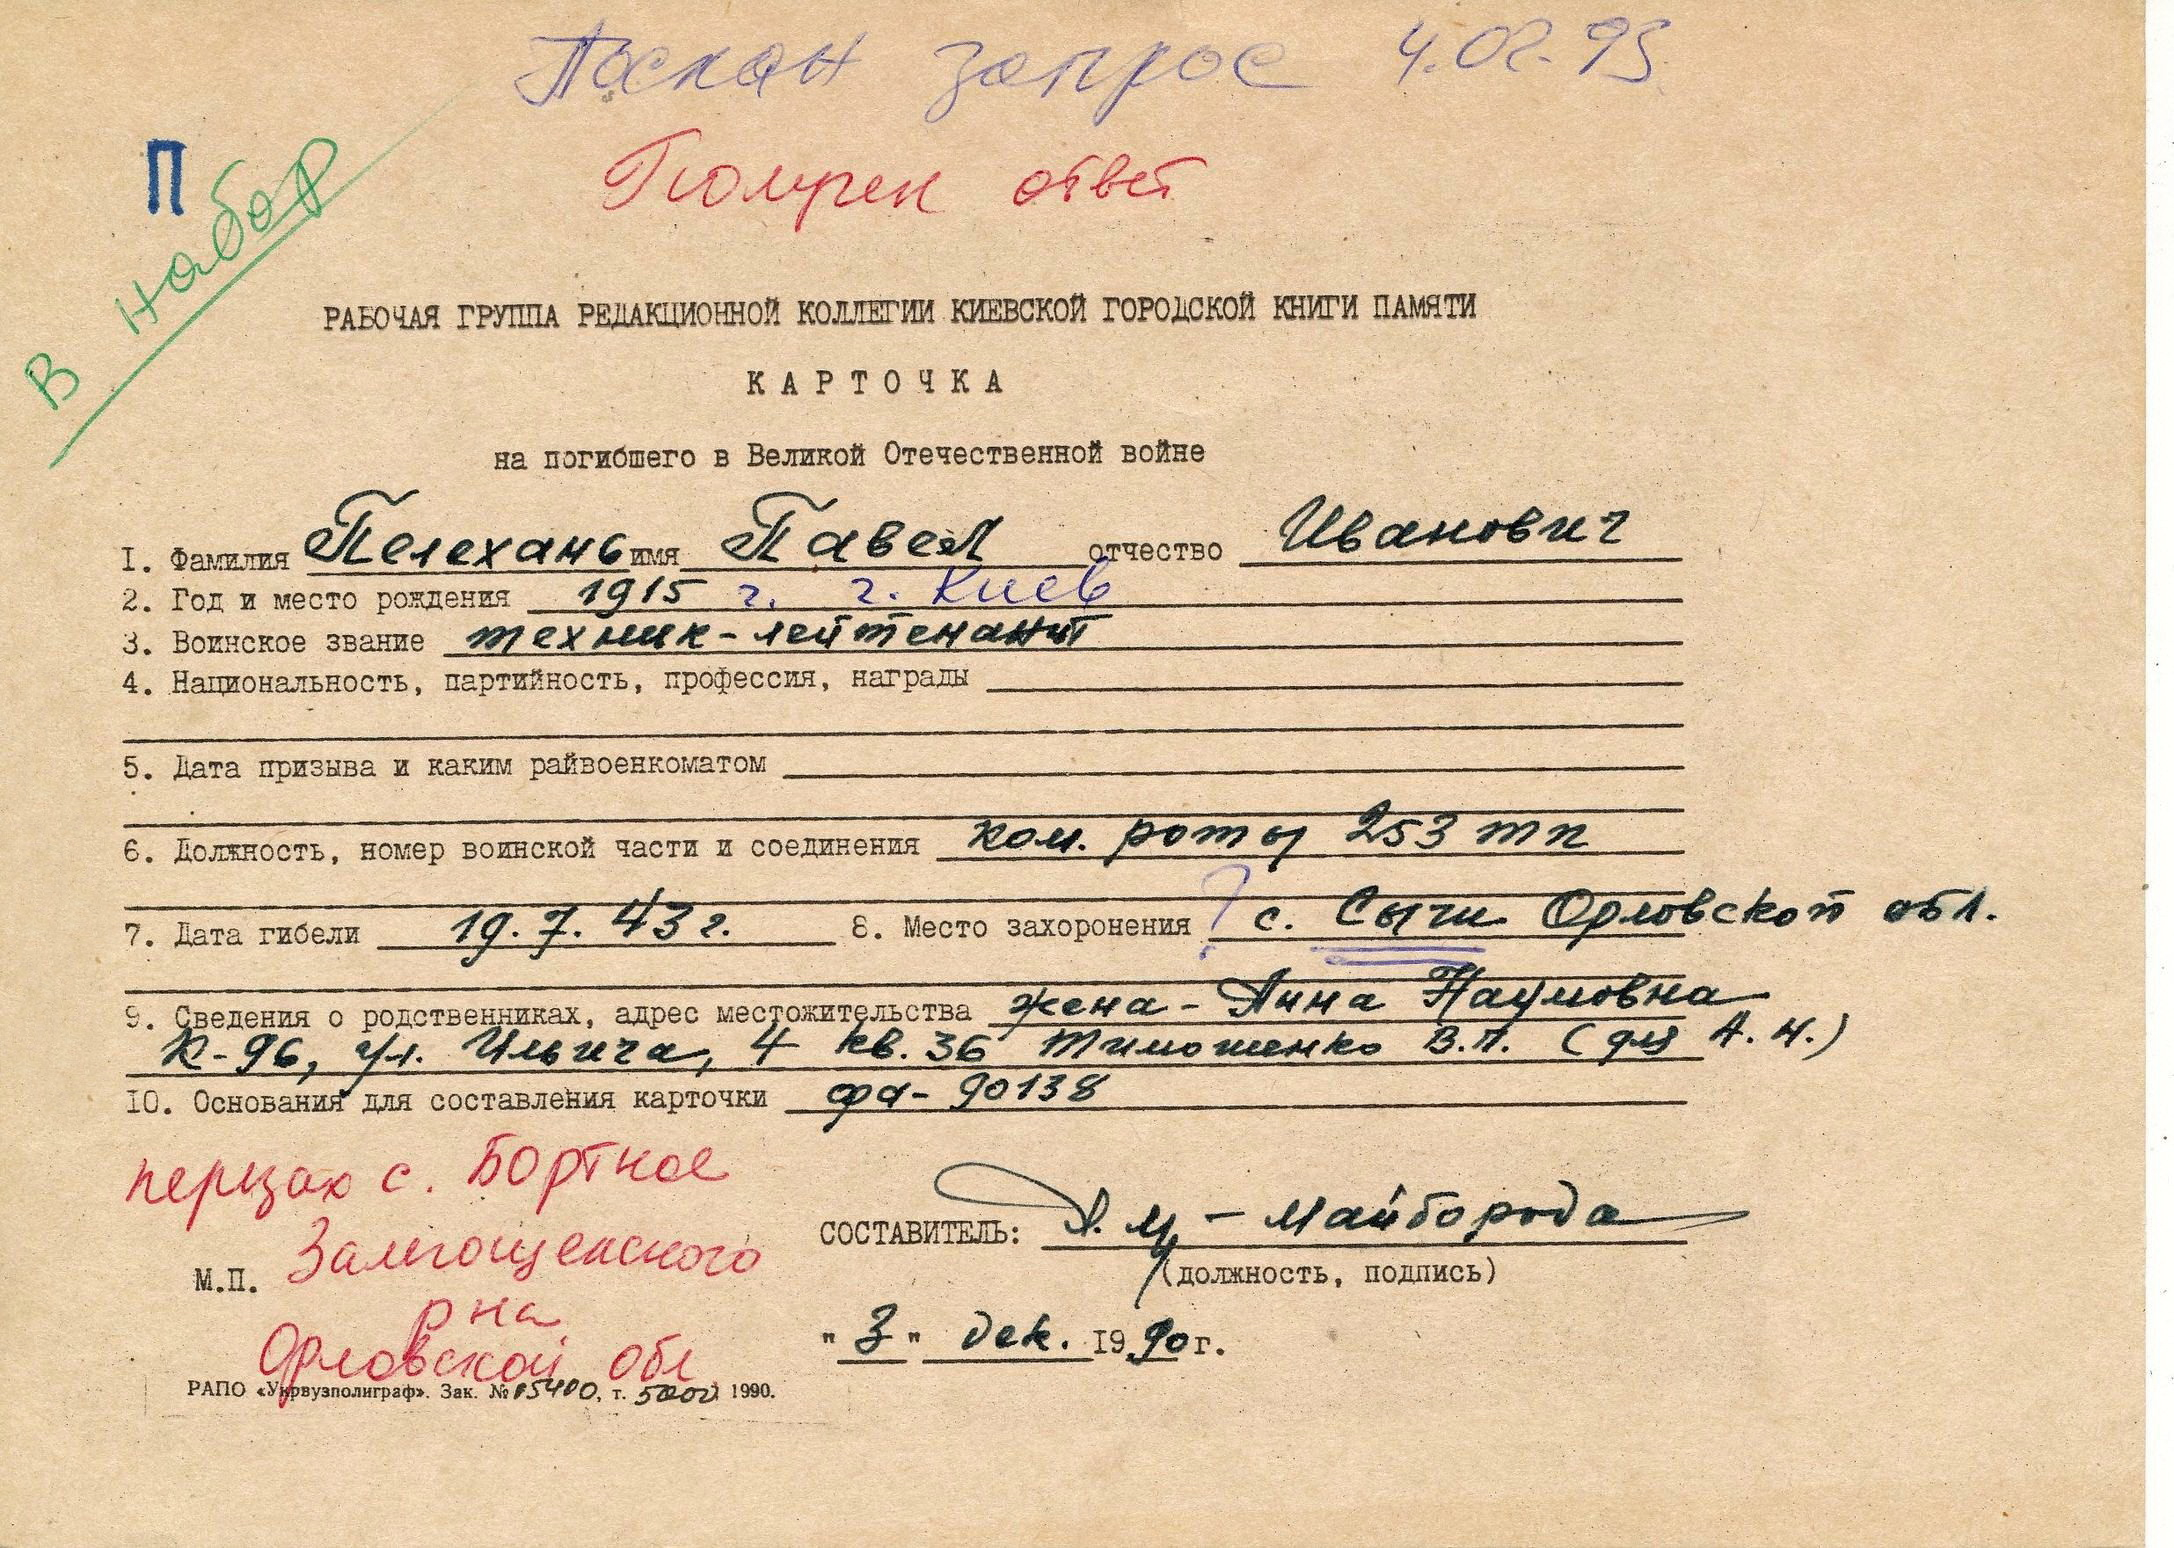 Послан запрос 4.02.93
Получен ответ
П
В набор
РАБОЧАЯ ГРУППА РЕДАКЦИОННОЙ КОЛЛЕГИИ КИЕВСКОЙ ГОРОДСКОЙ КНИГИ ПАМЯТИ
КАРТОЧКА
на погибшего в Великой Отечественной войне
1. Фамилия Пелехань имя Павел отчество Иванович
2. Год и место рождения 1915 г. г. Киев
3. Воинское звание техник-лейтенант
4. Национальность, партийность, профессия, награды
5. Дата призыва и каким райвоенкоматом
6. Должность, номер воинской части и соединения ком. роты 253 тп
7. Дата гибели 19.7.43 г. 8. Место захоронения ? с. Сычи Орловской обл.
9. Сведения о родственниках, адрес местожительства жена - Анна Наумовна
К-96, ул. Ильича, 4 кв. 36 Тимошенко В.П. (для А.Н.)
10. Основания для составления карточки фа-90138
перезах с. Бортное
Залегощенского
р на
Орловской обл
СОСТАВИТЕЛЬ: - Майборода
(должность, подпись)
М.П.
"3" дек. 1990 г.
РАПО «Укрвузполиграф». Зак. № 05400, т. 5000 1990.